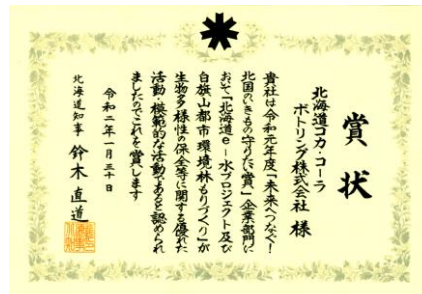 賞状
北海道コカ・コーラ
ボトリング株式会社 様
貴社は令和元年度「未来へつなぐ!
北国のいきもの守りたい賞」企業部門に
おいて「北海道e-水プロジェクト及び
白旗山都市環境林もりづくり」が
生物多様性の保全等に関する優れた
活動・模範的な活動であると認められ
ましたのでこれを賞します
令和二年一月三十日
北海道知事 鈴木直道